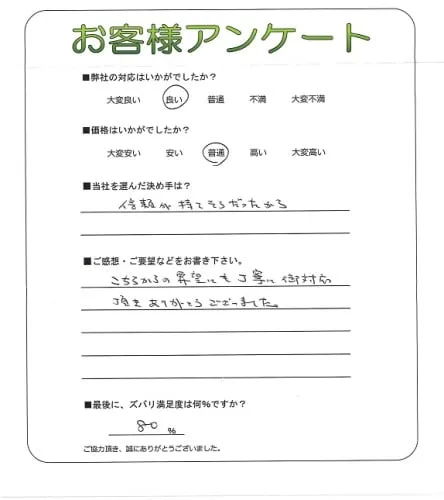 お客様アンケート
■弊社の対応はいかがでしたか？
大変良い 良い 普通 不満 大変不満
■価格はいかがでしたか？
大変安い 安い 普通 高い 大変高い
■当社を選んだ決め手は？
信頼が持てそうだったから
■ご感想・ご要望などをお書き下さい。
こちらからの希望にも丁寧に御対応
頂きありがとうございました。
■最後に、ズバリ満足度は何%ですか？
80 %
ご協力頂き、誠にありがとうございました。